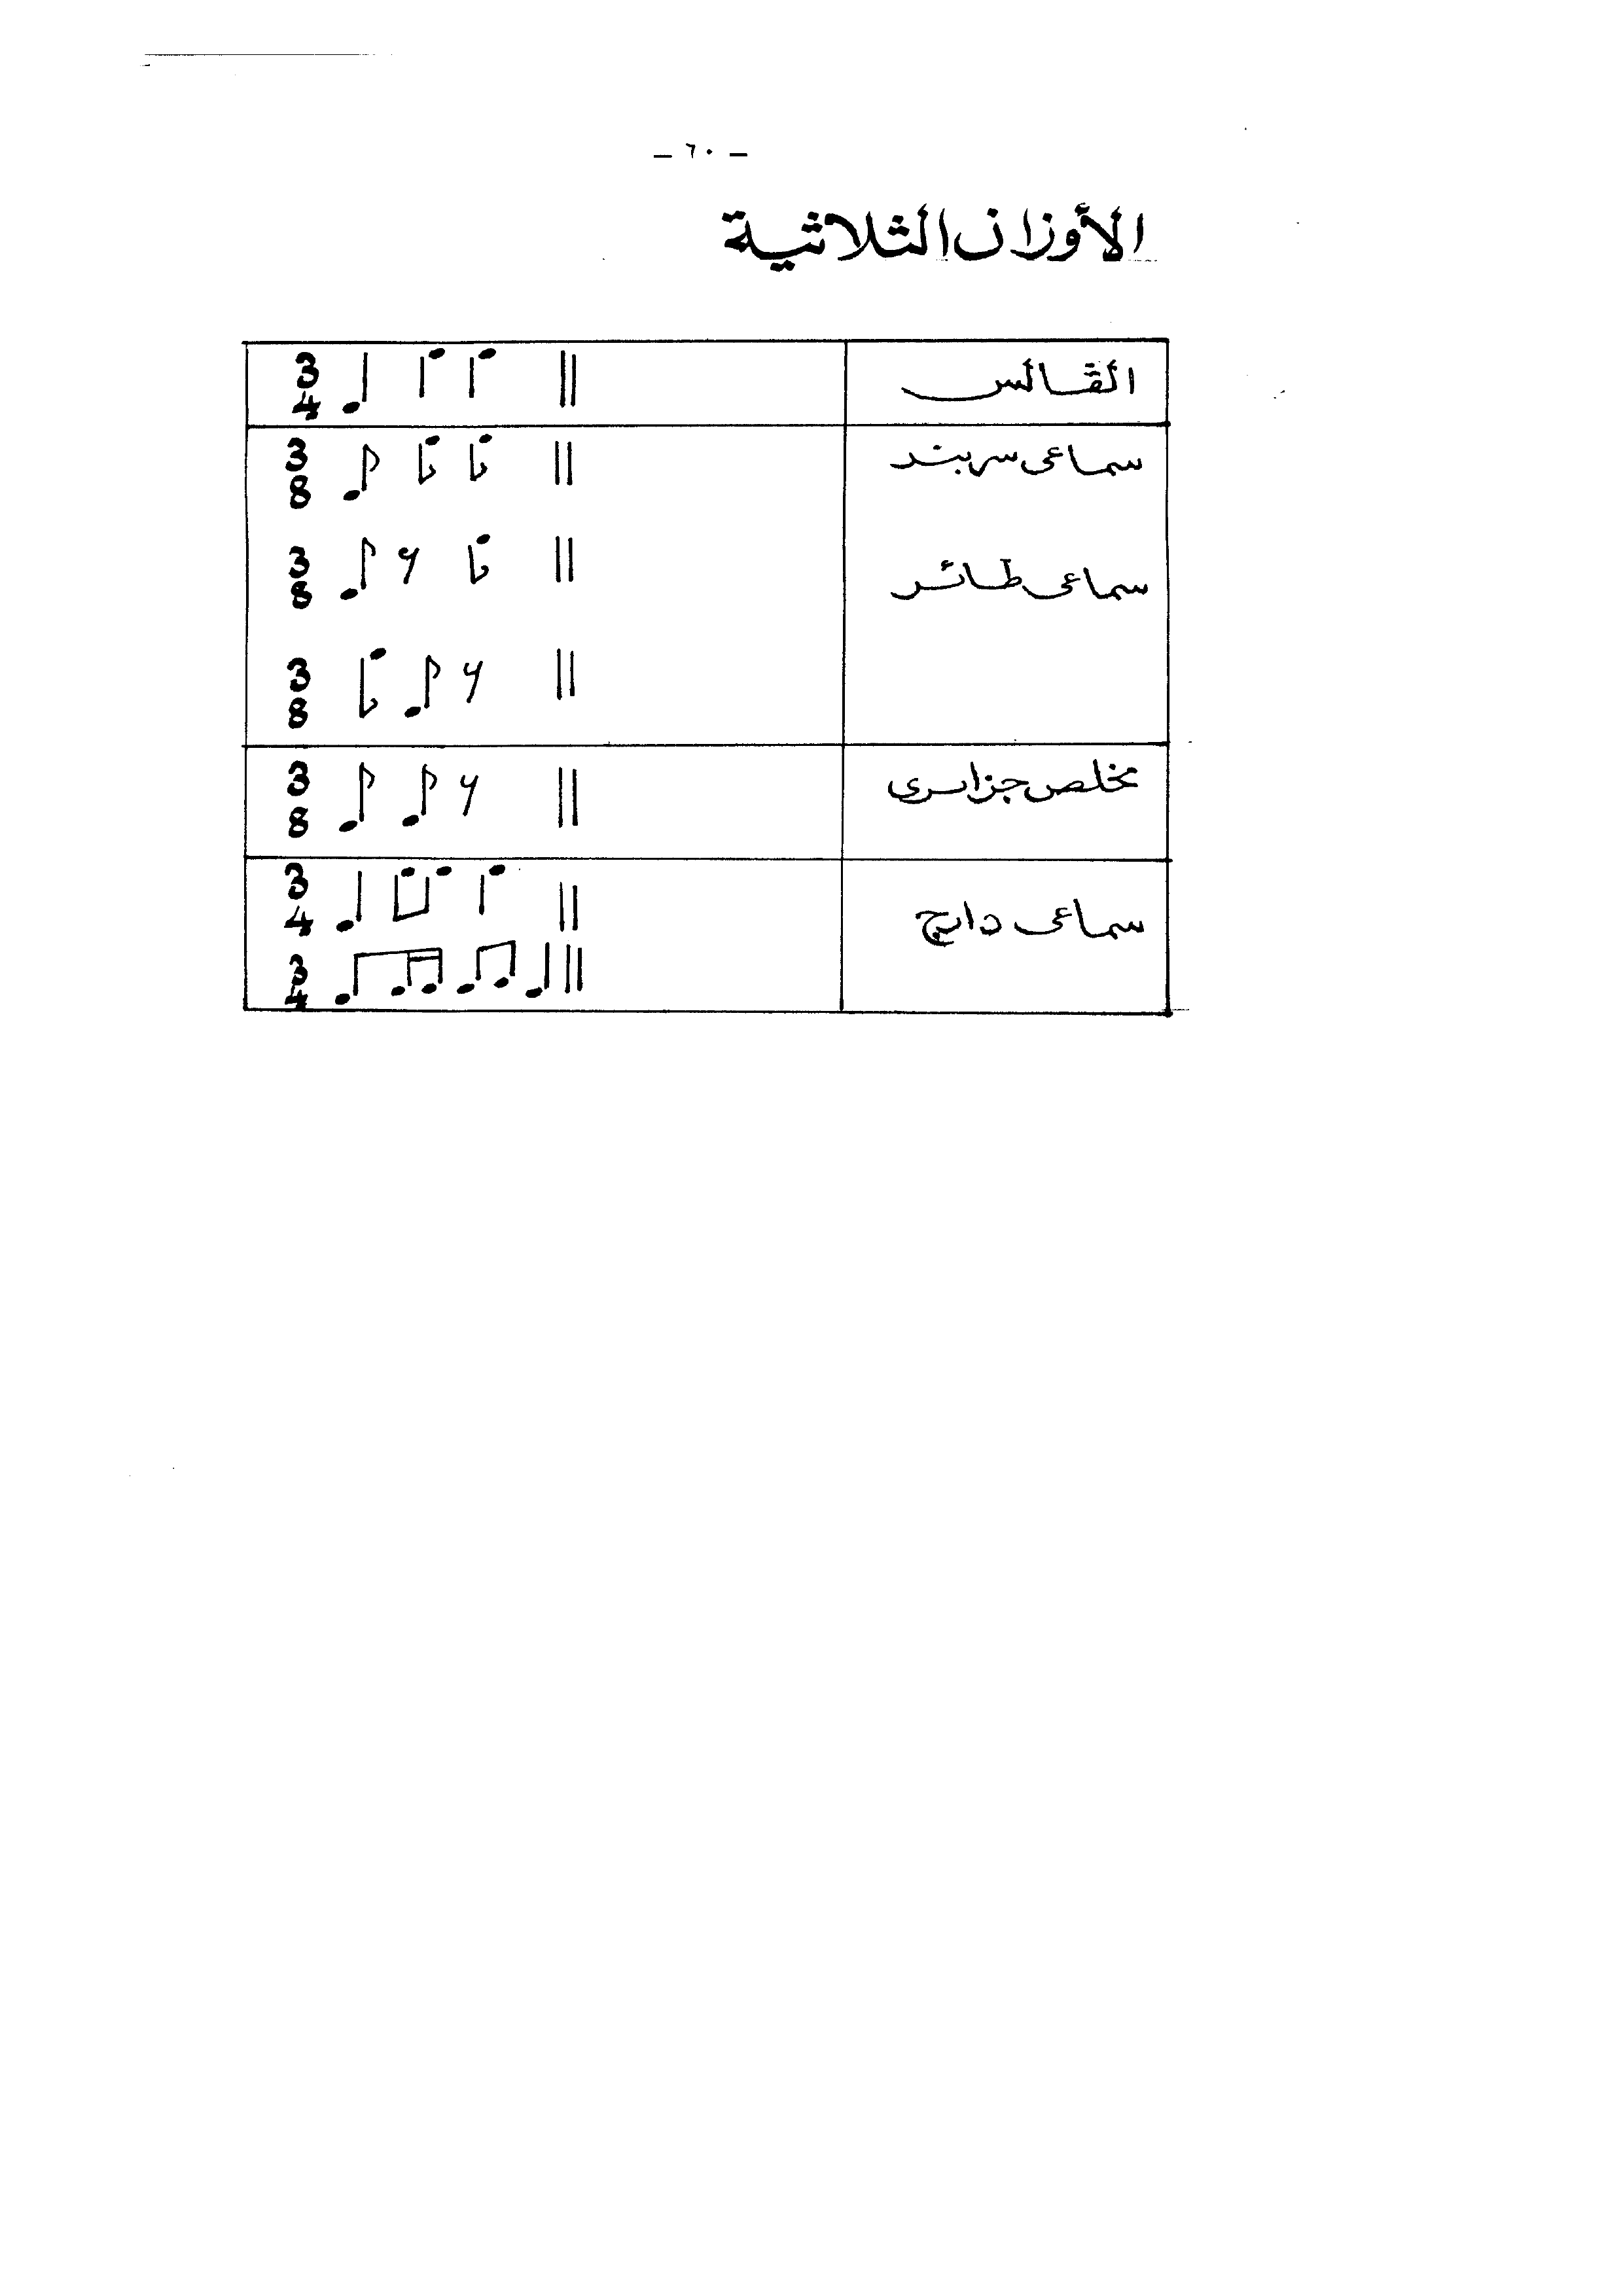 - ٦٠ -
الأوزان الثلاثية
الڤالس 3 4
سماعى سربند 3 8
سماعى طائر 3 8
3 8
مخلص جزائرى 3 8
سماعى دارج 3 4
3 4